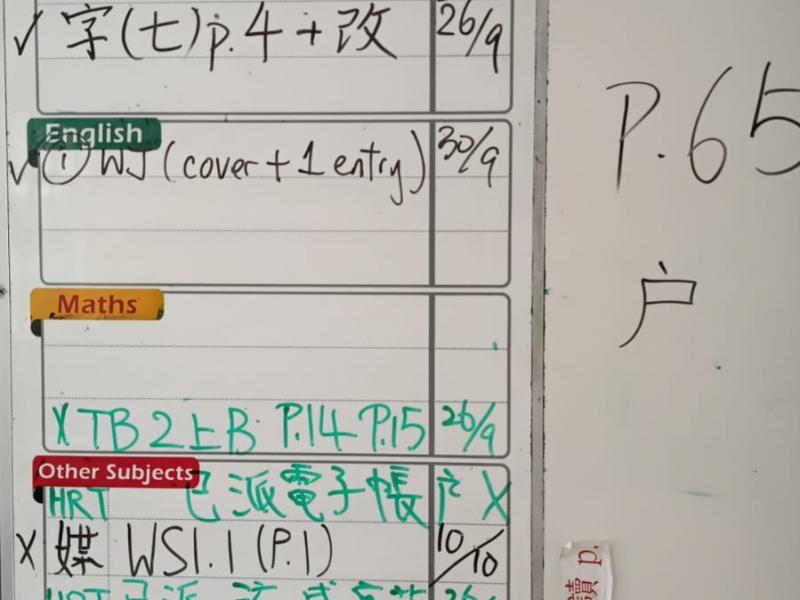 ✓ 字(七)p.4+改 26/9
English
✓ ① WJ (cover+1 entry) 30/9
Maths
X TB 2上B P.14-P.15 26/9
Other Subjects
HRT 已派電子帳户 X
X 媒 WS1.1 (P.1) 10/10
HRT 已派
P.65
户
讀 p.